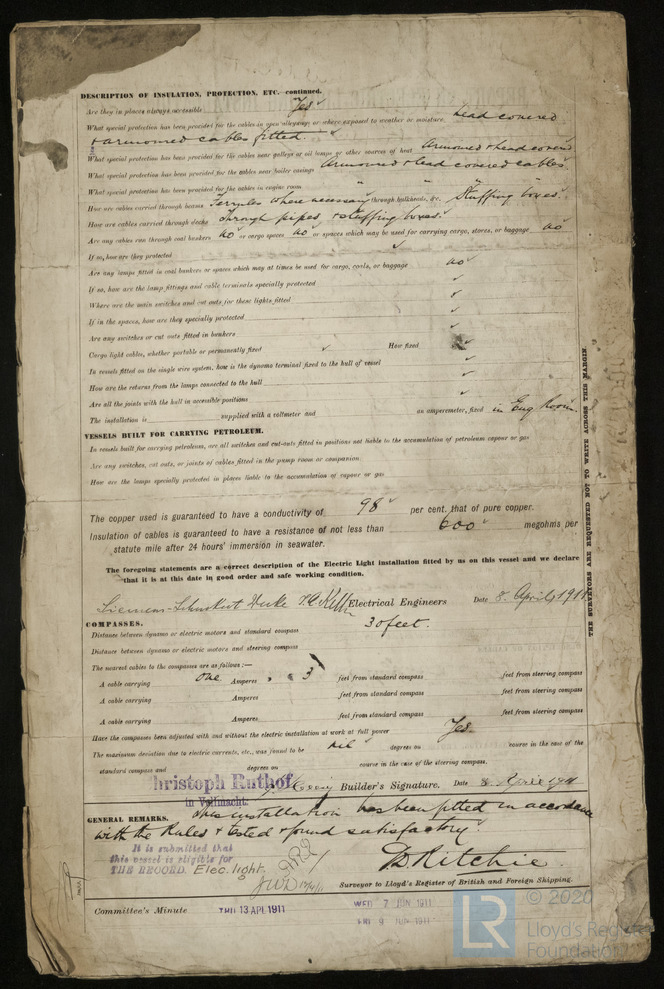 DESCRIPTION OF INSULATION, PROTECTION, ETC.—continued.
Are they in places always accessible Yes
What special protection has been provided for the cables in open alleyways or where exposed to weather or moisture Lead covered
& armoured cables fitted.
What special protection has been provided for the cables near galleys or oil lamps or other sources of heat Armoured & lead covered
What special protection has been provided for the cables near boiler casings Armoured & lead covered cables
What special protection has been provided for the cables in engine room " " "
How are cables carried through beams Ferrules where necessary through bulkheads, &c. Stuffing boxes.
How are cables carried through decks Through pipes & stuffing boxes.
Are any cables run through coal bunkers no or cargo spaces no or spaces which may be used for carrying cargo, stores, or baggage no
If so, how are they protected
Are any lamps fitted in coal bunkers or spaces which may at times be used for cargo, coals, or baggage no
If so, how are the lamp fittings and cable terminals specially protected
Where are the main switches and cut outs for these lights fitted
If in the spaces, how are they specially protected
Are any switches or cut outs fitted in bunkers
Cargo light cables, whether portable or permanently fixed How fixed
In vessels fitted on the single wire system, how is the dynamo terminal fixed to the hull of vessel
How are the returns from the lamps connected to the hull
Are all the joints with the hull in accessible positions
The installation is supplied with a voltmeter and an amperemeter, fixed in Eng Room.
VESSELS BUILT FOR CARRYING PETROLEUM.
In vessels built for carrying petroleum, are all switches and cut-outs fitted in positions not liable to the accumulation of petroleum vapour or gas
Are any switches, cut outs, or joints of cables fitted in the pump room or companion
How are the lamps specially protected in places liable to the accumulation of vapour or gas
The copper used is guaranteed to have a conductivity of 98 per cent. that of pure copper.
Insulation of cables is guaranteed to have a resistance of not less than 600 megohms per
statute mile after 24 hours' immersion in seawater.
The foregoing statements are a correct description of the Electric Light installation fitted by us on this vessel and we declare
that it is at this date in good order and safe working condition.
Siemens-Schuckert Electrical Engineers Date 8. April 1911
COMPASSES.
Distance between dynamo or electric motors and standard compass 30 feet.
Distance between dynamo or electric motors and steering compass
The nearest cables to the compasses are as follows:—
A cable carrying one Amperes 3 feet from standard compass feet from steering compass
A cable carrying Amperes feet from standard compass feet from steering compass
A cable carrying Amperes feet from standard compass feet from steering compass
Have the compasses been adjusted with and without the electric installation at work at full power Yes.
The maximum deviation due to electric currents, etc., was found to be nil degrees on course in the case of the
standard compass and degrees on course in the case of the steering compass.
hristoph Ruthof Builder's Signature. Date 8. April 1911
in Vollmacht:
GENERAL REMARKS. This installation has been fitted in accordance
with the Rules & tested & found satisfactory.
It is submitted that
this vessel is eligible for
THE RECORD. Elec. light.
D Ritchie
Surveyor to Lloyd's Register of British and Foreign Shipping.
Committee's Minute THU 13 APL 1911 WED 7 JUN 1911
FRI 9 JUN 1911
THE SURVEYORS ARE REQUESTED NOT TO WRITE ACROSS THIS MARGIN.
LR
© 2020
Lloyd's Register
Foundation